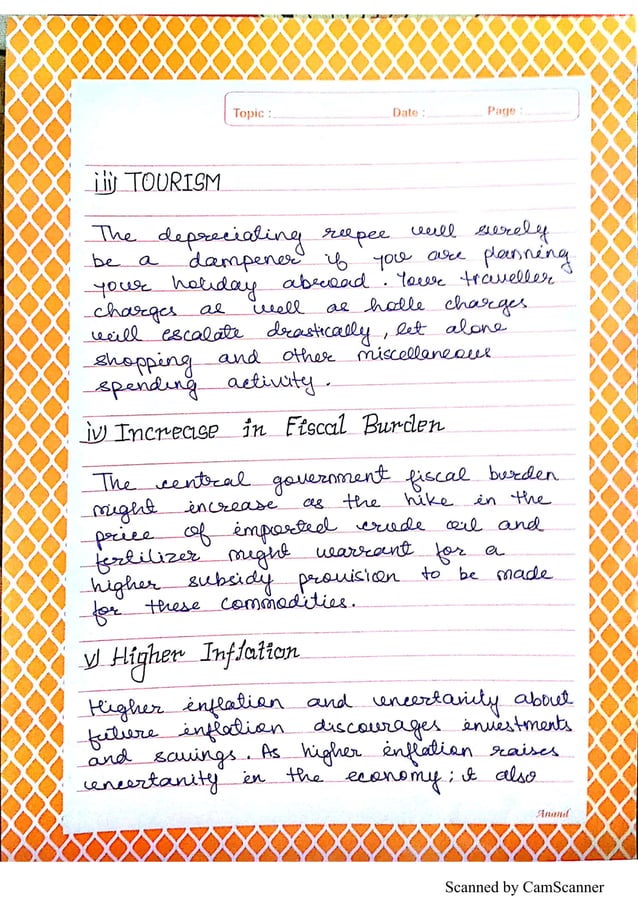 Topic : Date : Page :
iii) TOURISM
The depreciating rupee will surely
be a dampener if you are planning
your holiday abroad. Your traveller
charges as well as hotle charges
will escalate drastically, let alone
shopping and other miscellaneous
spending activity.
iv) Increase in Fiscal Burden
The central government fiscal burden
might increase as the hike in the
price of imported crude oil and
fertilizer might warrant for a
higher subsidy provision to be made
for these commodities.
v) Higher Inflation
Higher inflation and uncertanity about
future inflation discourages investments
and savings. As higher inflation raises
uncertanity in the economy; it also
Anand
Scanned by CamScanner